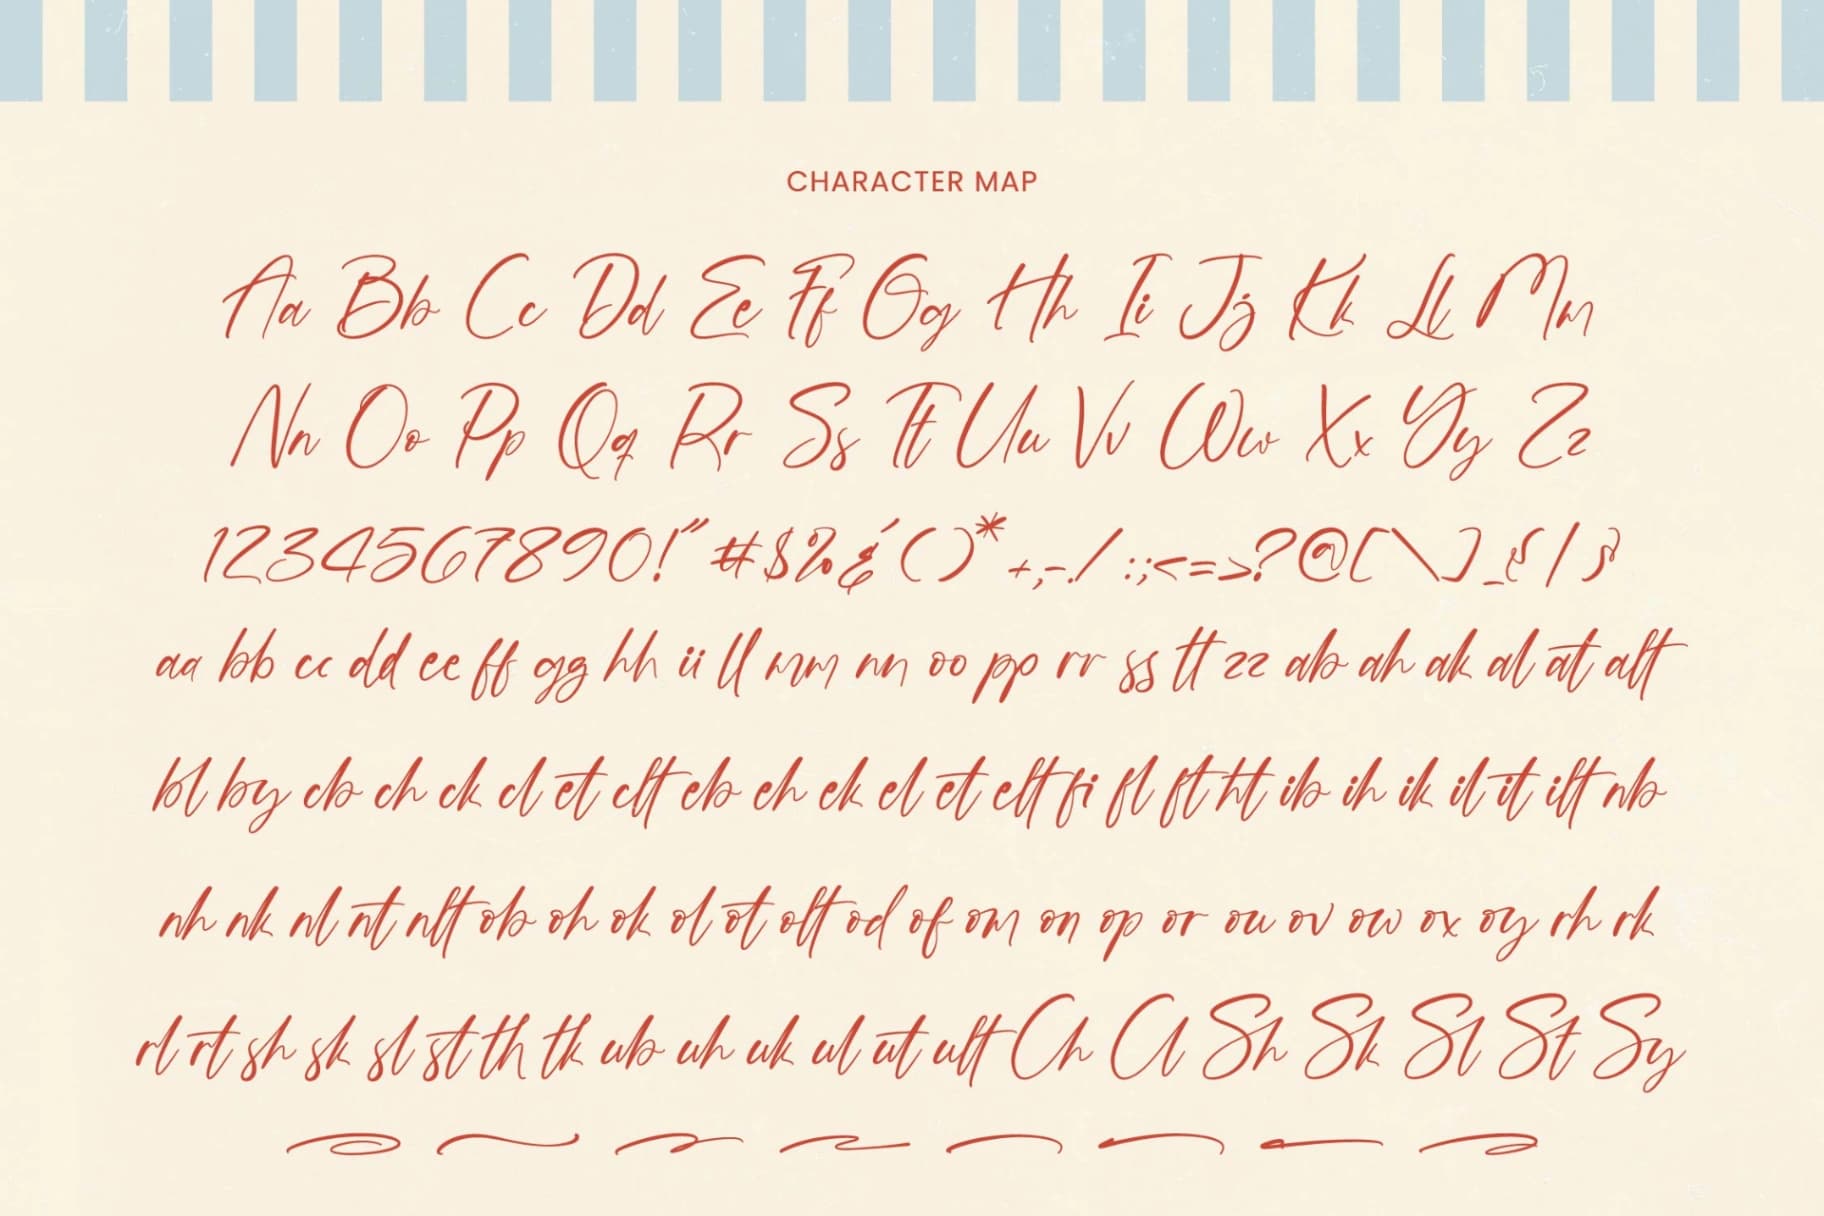 CHARACTER MAP
Aa Bb Cc Dd Ee Ff Gg Hh Ii Jj Kk Ll Mm
Nn Oo Pp Qq Rr Ss Tt Uu Vv Ww Xx Yy Zz
1234567890!"#$%&'()*+,-./:;<=>?@[\]_{|}
aa bb cc dd ee ff gg hh ii ll mm nn oo pp rr ss tt zz ab ah ak al at alt
bl by cb ch ck cl et clt eb eh ek el et elt fi fl ft ht ib ih ik il it ilt nb
nh nk nl nt nlt ob oh ok ol ot olt od of om on op or ou ov ow ox oy rh rk
rl rt sh sk sl st th tk ub uh uk ul ut ult Ch Cl Sh Sk Sl St Sy